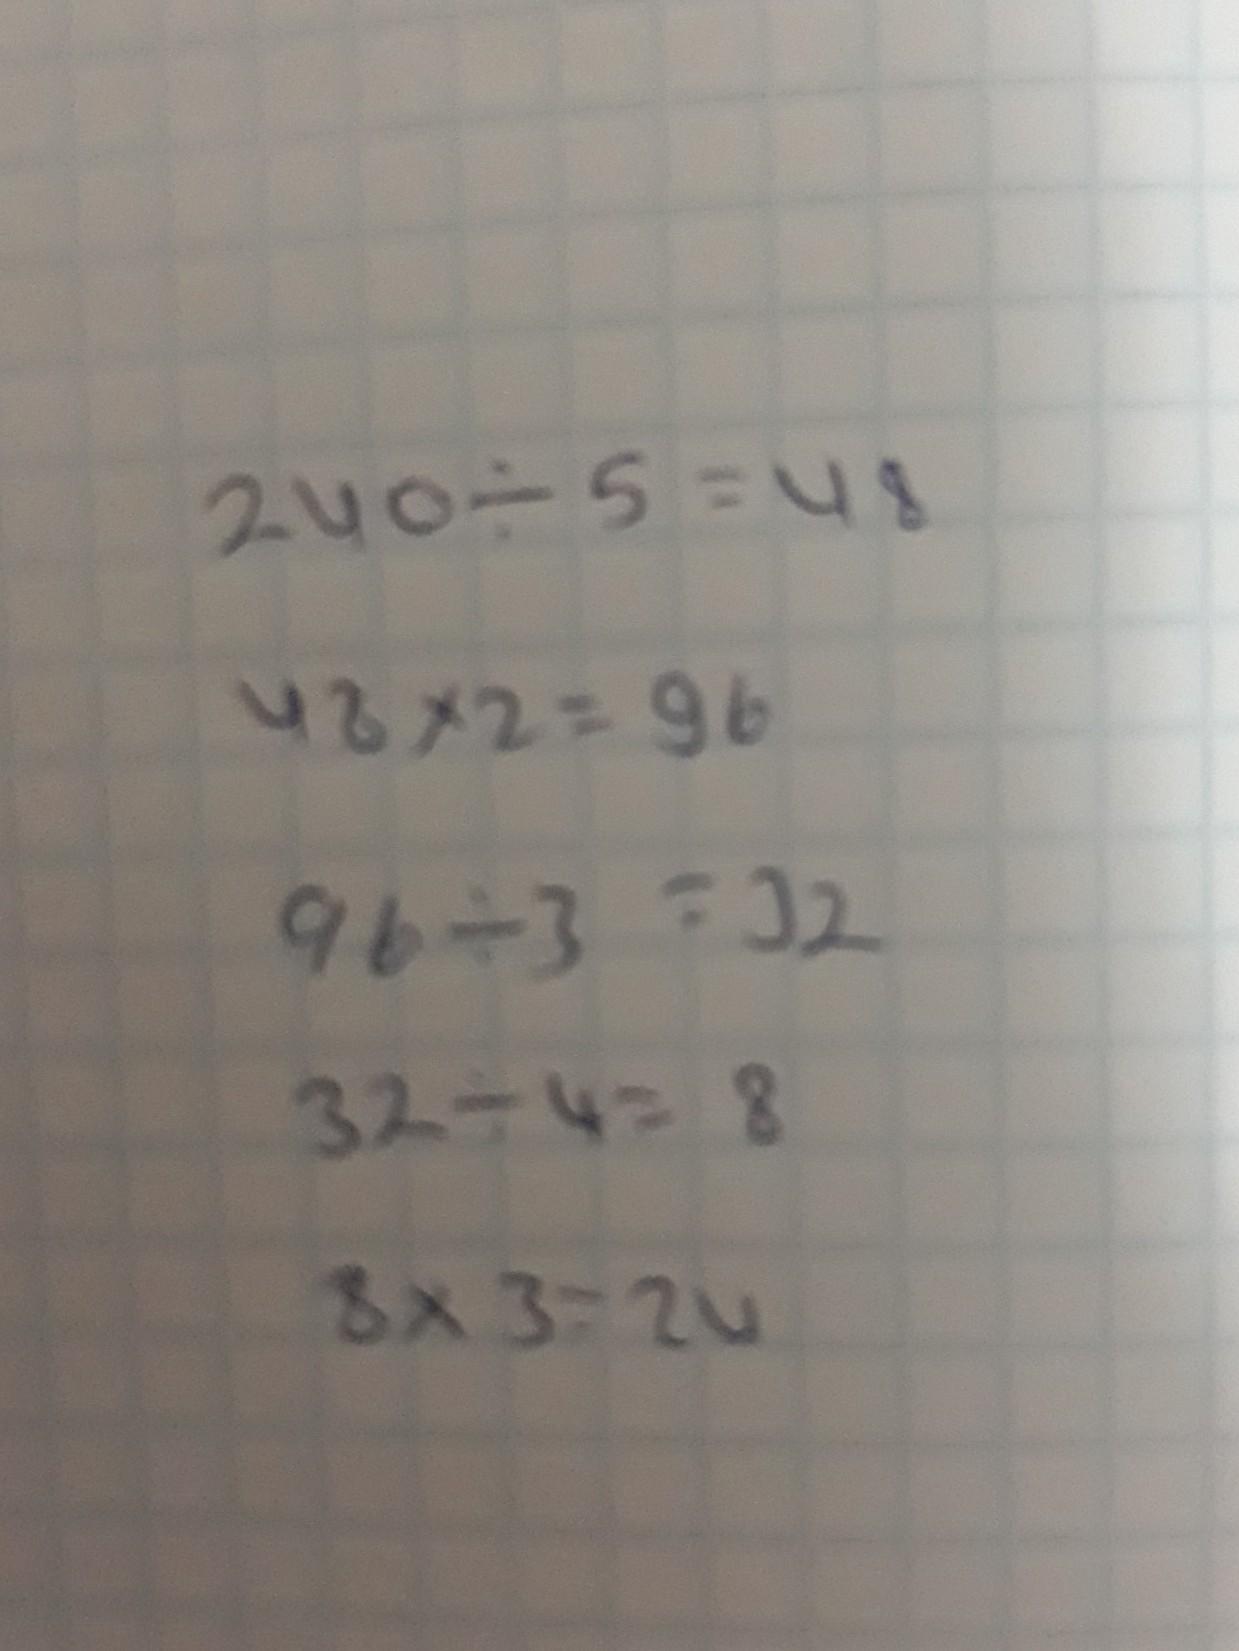 240÷5=48
48×2=96
96÷3=32
32÷4=8
8×3=24